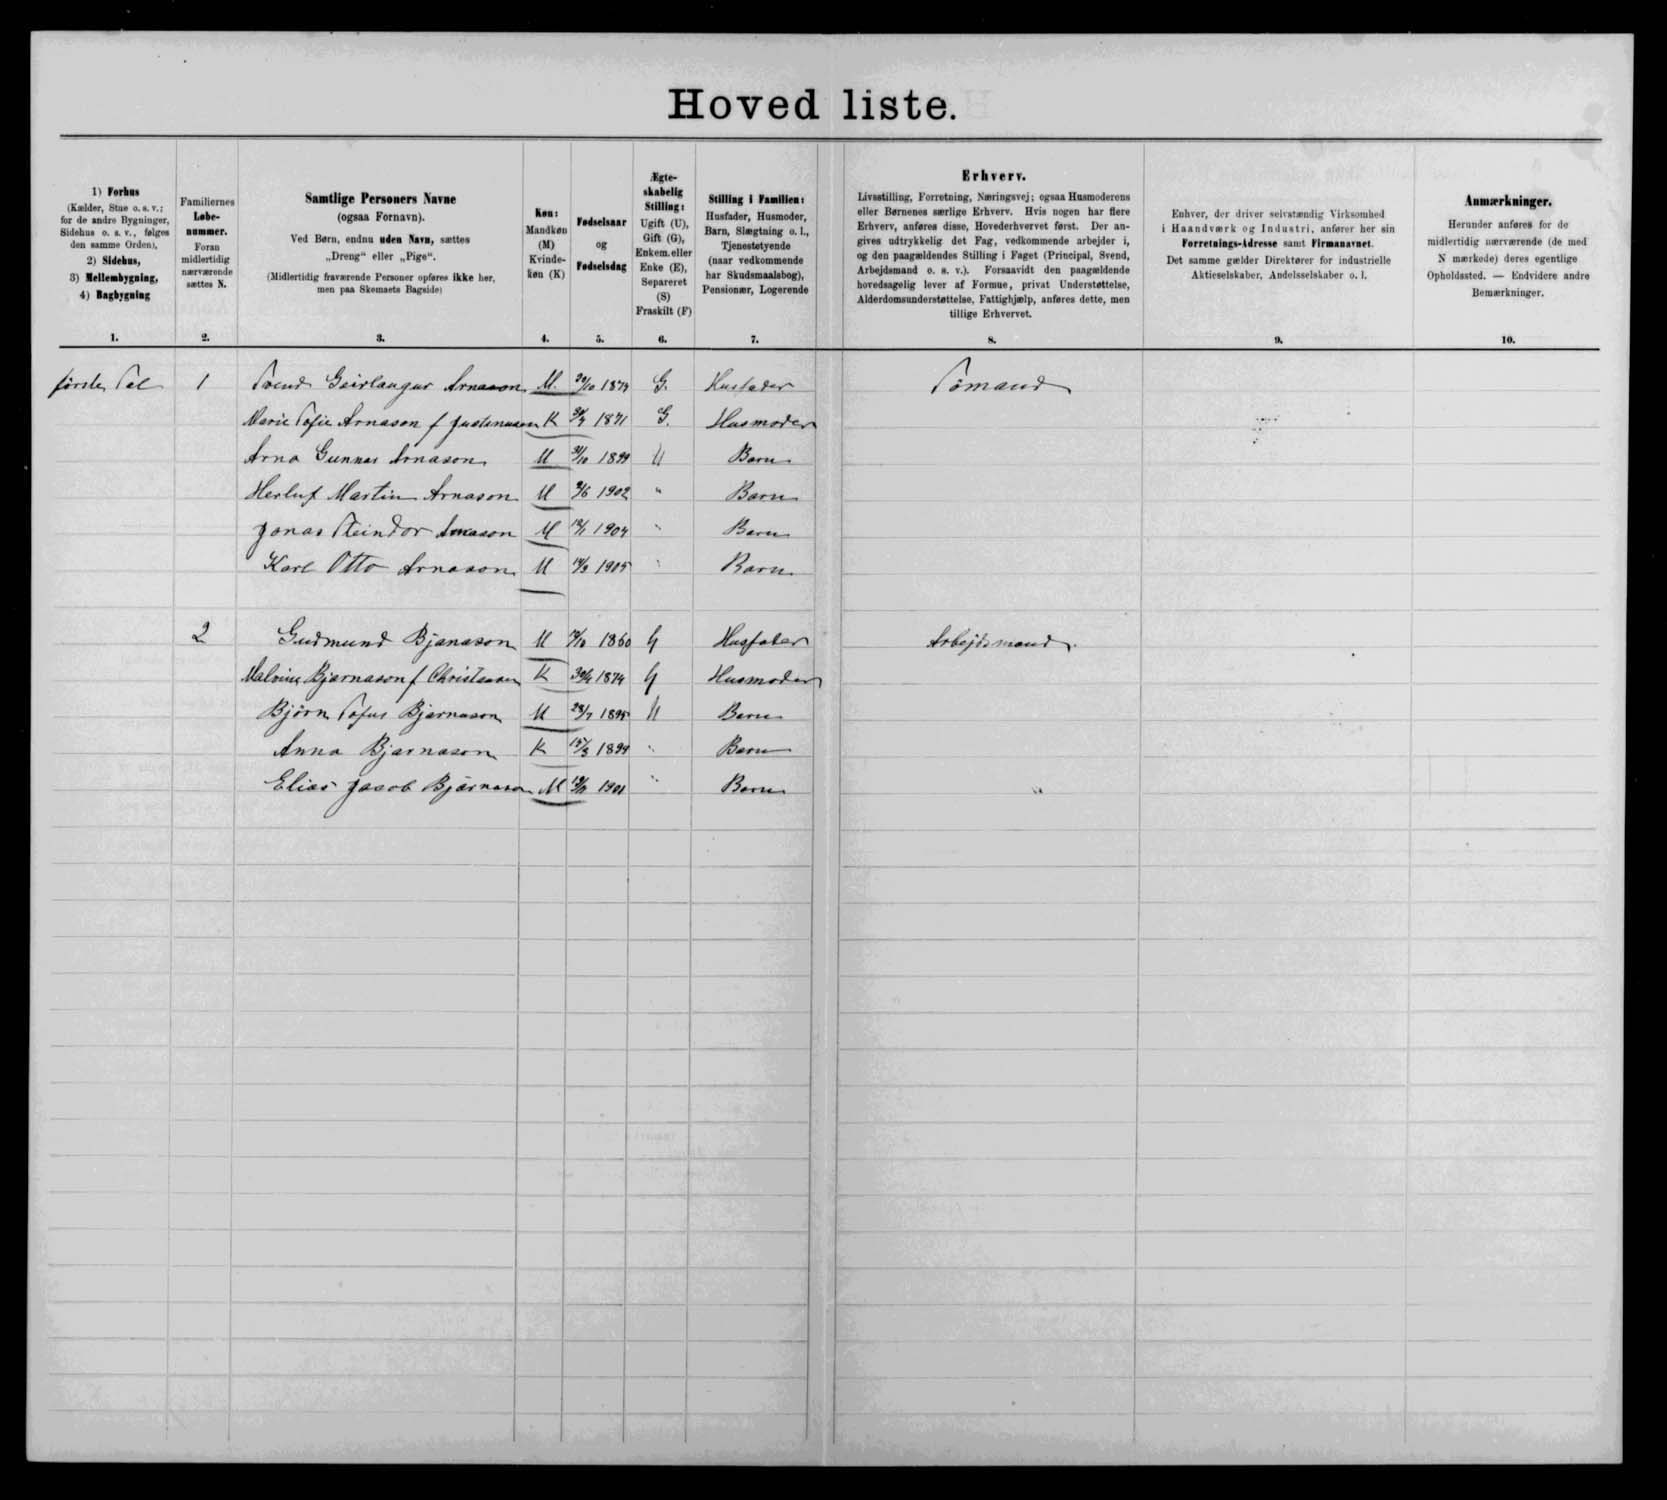 Hoved liste.
1) Forhus
(Kælder, Stue o. s. v.;
for de andre Bygninger,
Sidehus o. s. v., følges
den samme Orden),
2) Sidehus,
3) Mellembygning,
4) Bagbygning
1.
Familiernes
Løbe-
nummer.
Foran
midlertidig
nærværende
sættes N.
2.
Samtlige Personers Navne
(ogsaa Fornavn).
Ved Børn, endnu uden Navn, sættes
„Dreng“ eller „Pige“.
(Midlertidig fraværende Personer opføres ikke her,
men paa Skemaets Bagside)
3.
Køn:
Mandkøn
(M)
Kvinde-
køn (K)
4.
Fødselsaar
og
Fødselsdag
5.
Ægte-
skabelig
Stilling:
Ugift (U),
Gift (G),
Enkem. eller
Enke (E),
Separeret
(S)
Fraskilt (F)
6.
Stilling i Familien:
Husfader, Husmoder,
Barn, Slægtning o. l.,
Tjenestetyende
(naar vedkommende
har Skudsmaalsbog),
Pensionær, Logerende
7.
Erhverv.
Livsstilling, Forretning, Næringsvej; ogsaa Husmoderens
eller Børnenes særlige Erhverv. Hvis nogen har flere
Erhverv, anføres disse, Hovederhvervet først. Der an-
gives udtrykkelig det Fag, vedkommende arbejder i,
og den paagældendes Stilling i Faget (Principal, Svend,
Arbejdsmand o. s. v.). Forsaavidt den paagældende
hovedsagelig lever af Formue, privat Understøttelse,
Alderdomsunderstøttelse, Fattighjælp, anføres dette, men
tillige Erhvervet.
8.
Enhver, der driver selvstændig Virksomhed
i Haandværk og Industri, anfører her sin
Forretnings-Adresse samt Firmanavnet.
Det samme gælder Direktører for industrielle
Aktieselskaber, Andelsselskaber o. l.
9.
Anmærkninger.
Herunder anføres for de
midlertidig nærværende (de med
N mærkede) deres egentlige
Opholdssted. — Endvidere andre
Bemærkninger.
10.
første Sal 1 Geirlaugur Arnason M. 1874 G. Husfader Sømand
Marie Sofie Arnason f Justinussen K 1871 G. Husmoder
Arno Gunnar Arnason M 31/10 1899 U Barn
Herluf Martin Arnason M 1902 " Barn
Jonas Steindor Arnason M 1904 " Barn
Karl Otto Arnason M 14/3 1905 " Barn
2 Gudmund Bjanason M 1860 G Husfader Arbejdsmand
Bjarnason f Christensen K 1874 G Husmoder
Bjørn Sofus Bjarnason M 28/7 1895 U Barn
Anna Bjarnason K 15/3 1899 " Barn
Elias Jacob Bjarnason M 1901 " Barn